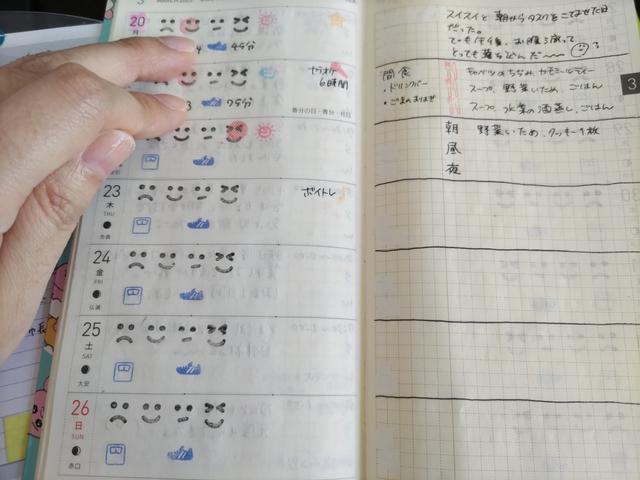 20
月
45分
カラオケ
6時間
75分
春分の日・春分・社日
23
木
THU
先負
ボイトレ
24
金
FRI
仏滅
25
土
SAT
大安
26
日
SUN
赤口
スイスイと朝からタスクをこなせた日
だった。
でも午後、お腹が減って
とっても落ち込んだ〜〜
間食
・ドリンクバー
・ごまおはぎ
キャベツのちぢみ、カモミールティー
スープ、野菜いため、ごはん
スープ、白菜の酒蒸し、ごはん
3
朝 野菜いため、クッキー1枚
昼
夜